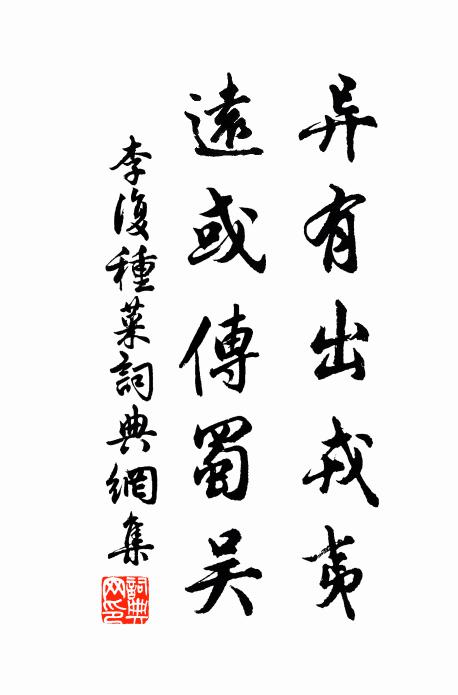 异有出戎夷
遠或傳蜀吴
李復種菜詞典網集
詞典網印